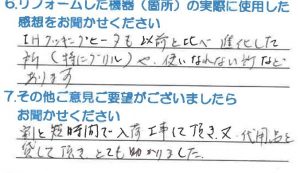 6.リフォームした機器(箇所)の実際に使用した
感想をお聞かせください
IHクッキングヒータも以前と比べ進化した
所(特にグリル)や、使いなれない所など
あります
7.その他ご意見ご要望がございましたら
お聞かせください
割と短時間で入荷工事にて頂き、又、代用品を
貸して頂き、とても助かりました。